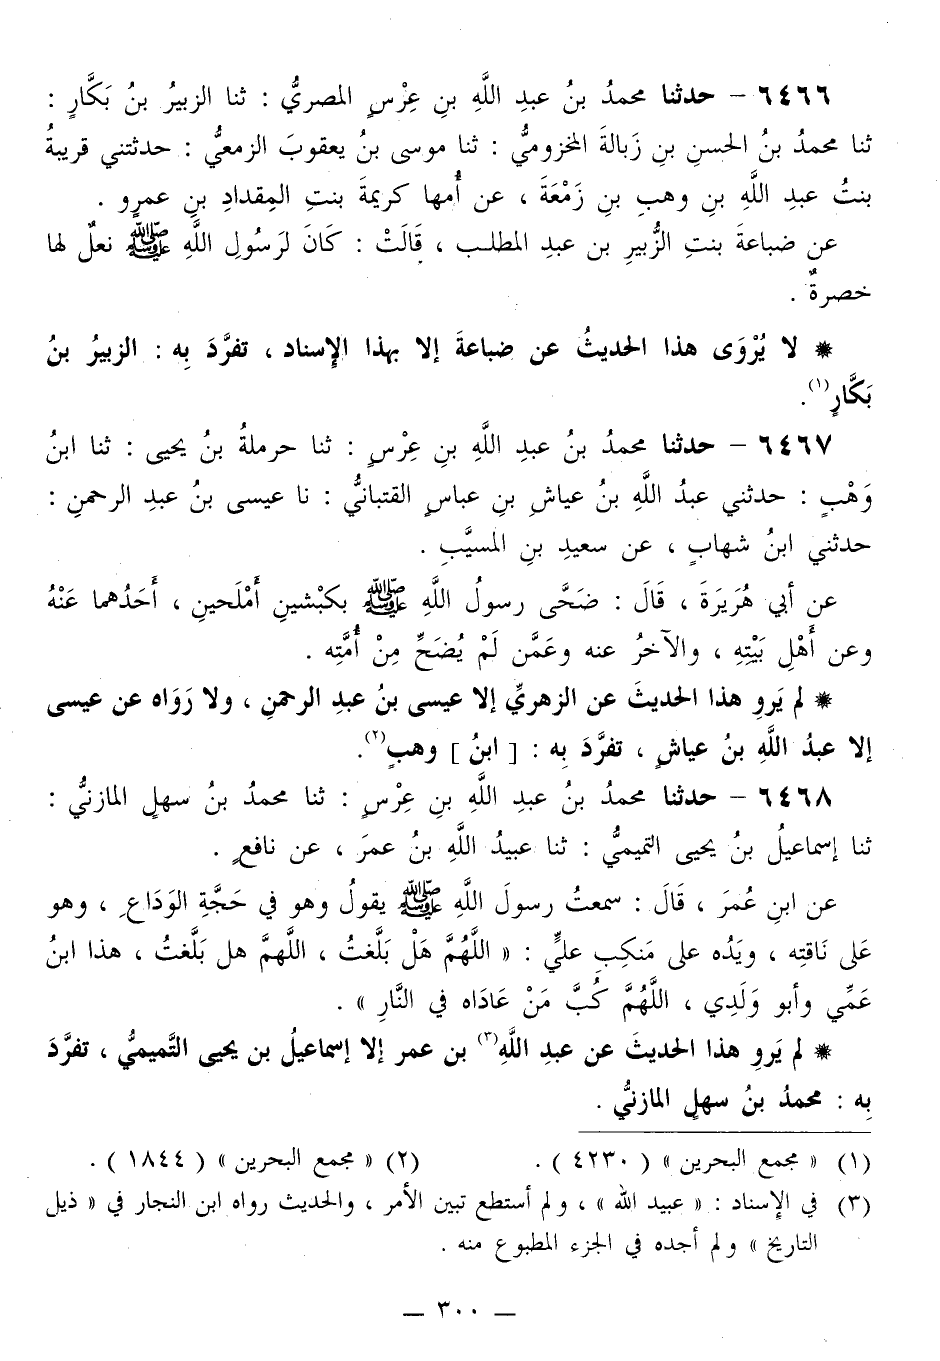 ٦٤٦٦ – حدثنا محمدُ بنُ عبدِ اللَّهِ بنِ عِرْسٍ المصريُّ : ثنا الزبيرُ بنُ بَكَّارٍ :
ثنا محمدُ بنُ الحسنِ بنِ زَبالةَ المخزوميُّ : ثنا موسى بنُ يعقوبَ الزمعيُّ : حدثتني قريبةُ
بنتُ عبدِ اللَّهِ بنِ وهبِ بنِ زَمْعَةَ ، عن أُمها كريمةَ بنتِ المِقدادِ بنِ عمرٍو .
عن ضباعةَ بنتِ الزُّبيرِ بن عبدِ المطلب ، قَالَتْ : كَانَ لرَسُولِ اللَّهِ ﷺ نعلٌ لها
خصرةٌ .
⁕ لا يُرْوَى هذا الحديثُ عن ضباعةَ إلا بهذا الإِسناد ، تفرَّدَ بِه : الزبيرُ بنُ
بَكَّارٍ(١).
٦٤٦٧ – حدثنا محمدُ بنُ عبدِ اللَّهِ بنِ عِرْسٍ : ثنا حرملةُ بنُ يحيى : ثنا ابنُ
وَهْبٍ : حدثني عبدُ اللَّهِ بنُ عياشِ بنِ عباسٍ القتبانيُّ : نا عيسى بنُ عبدِ الرحمنِ :
حدثني ابنُ شهابٍ ، عن سعيدِ بنِ المسيَّبِ .
عن أبي هُرَيرَةَ ، قَالَ : ضَحَّى رسولُ اللَّهِ ﷺ بكَبْشينِ أَمْلَحينِ ، أَحَدُهما عَنْهُ
وعن أَهْلِ بَيْتِهِ ، والآخرُ عنه وعَمَّن لَمْ يُضَحِّ مِنْ أُمَّتِه .
⁕ لم يَروِ هذا الحديثَ عن الزهريِّ إلا عيسى بنُ عبدِ الرحمنِ ، ولا رَوَاه عن عيسى
إلا عبدُ اللَّهِ بنُ عياشٍ ، تفرَّدَ بِه : [ ابنُ ] وهبٍ(٢).
٦٤٦٨ – حدثنا محمدُ بنُ عبدِ اللَّهِ بنِ عِرْسٍ : ثنا محمدُ بنُ سهلٍ المازنيُّ :
ثنا إسماعيلُ بنُ يحيى التميميُّ : ثنا عبيدُ اللَّهِ بنُ عمرَ ، عن نافعٍ .
عن ابنِ عُمرَ ، قَالَ : سمعتُ رسولَ اللَّهِ ﷺ يقولُ وهو في حَجَّةِ الوَدَاعِ ، وهو
عَلى نَاقتِه ، ويَدُه على مَنكِبِ عليٍّ : « اللَّهُمَّ هَلْ بَلَّغتُ ، اللَّهمَّ هل بَلَّغتُ ، هذا ابنُ
عَمِّي وأبو وَلَدِي ، اللَّهُمَّ كُبَّ مَنْ عَادَاه في النَّارِ » .
⁕ لم يَروِ هذا الحديثَ عن عبدِ اللَّهِ(٣) بن عمر إلا إسماعيلُ بن يحيى التَّميميُّ ، تفرَّدَ
بِه : محمدُ بنُ سهلٍ المازنيُّ .
(١) « مجمع البحرين » ( ٤٢٣٠ ) . (٢) « مجمع البحرين » ( ١٨٤٤ ) .
(٣) في الإِسناد : « عبيد الله » ، ولم أستطع تبين الأمر ، والحديث رواه ابن النجار في « ذيل
التاريخ » ولم أجده في الجزء المطبوع منه .
— ٣٠٠ —